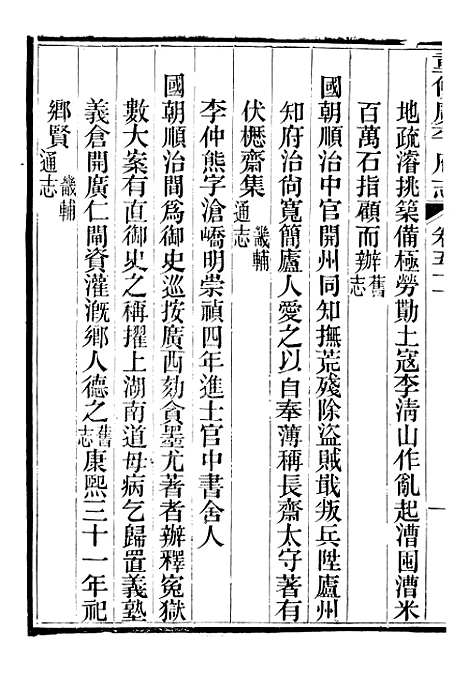 重修廣平府志 卷五十一
地疏濬挑築備極勞勤土寇李淸山作亂起漕困漕米
百萬石指顧而辦舊志
國朝順治中官開州同知撫荒殘除盜賊戢叛兵陞廬州
知府治尙寬簡廬人愛之以自奉薄稱長齋太守著有
伏櫪齋集畿輔通志
李仲熊字滄嶠明崇禎四年進士官中書舍人
國朝順治間爲御史巡按廣西劾貪墨尤著者辦釋寃獄
數大案有直御史之稱擢上湖南道母病乞歸置義塾
義倉開廣仁閘資灌漑鄕人德之舊志康熙三十一年祀
鄕賢畿輔通志